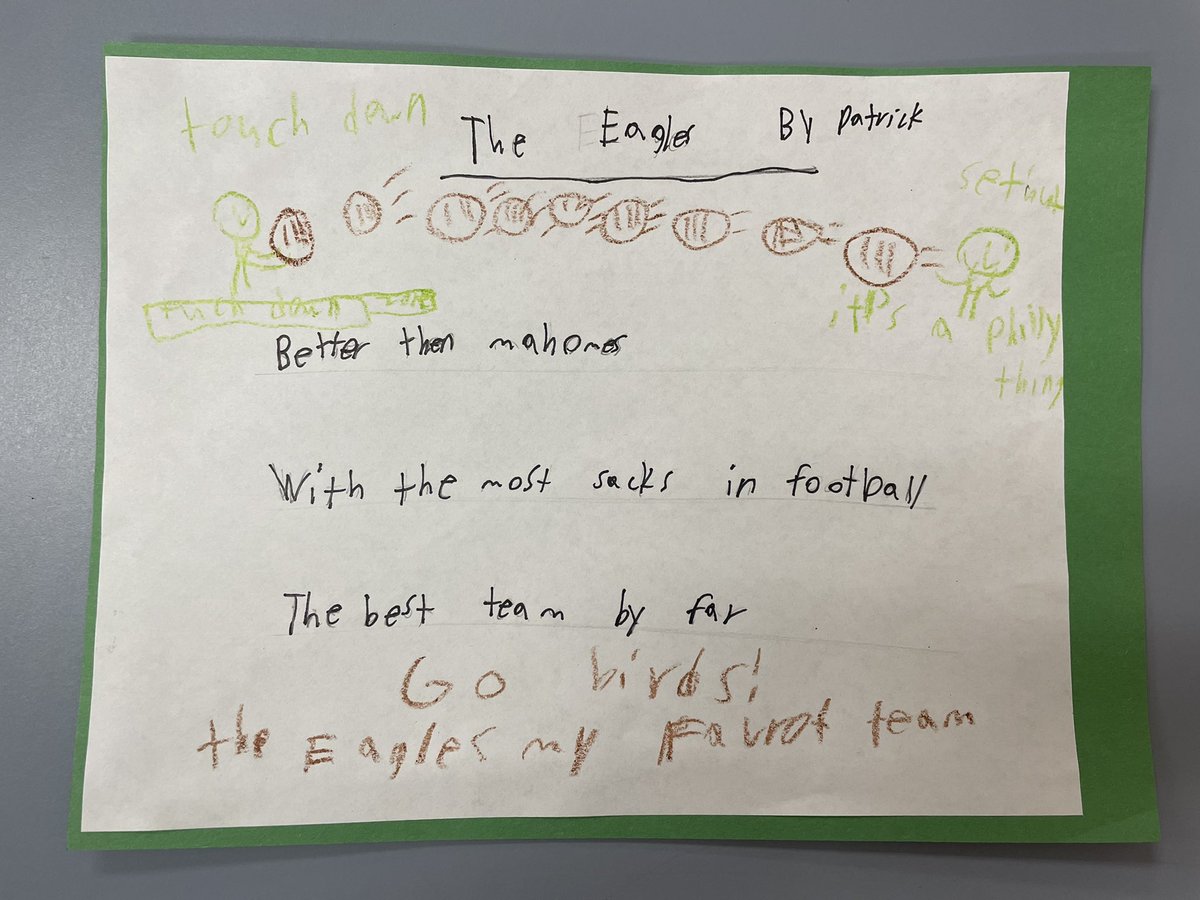 touch down
The Eagles By Patrick
touch down zone
it's a philly
thing
Better then mahomes
With the most sacks in football
The best team by far
Go birds!
the Eagles my Favrot team